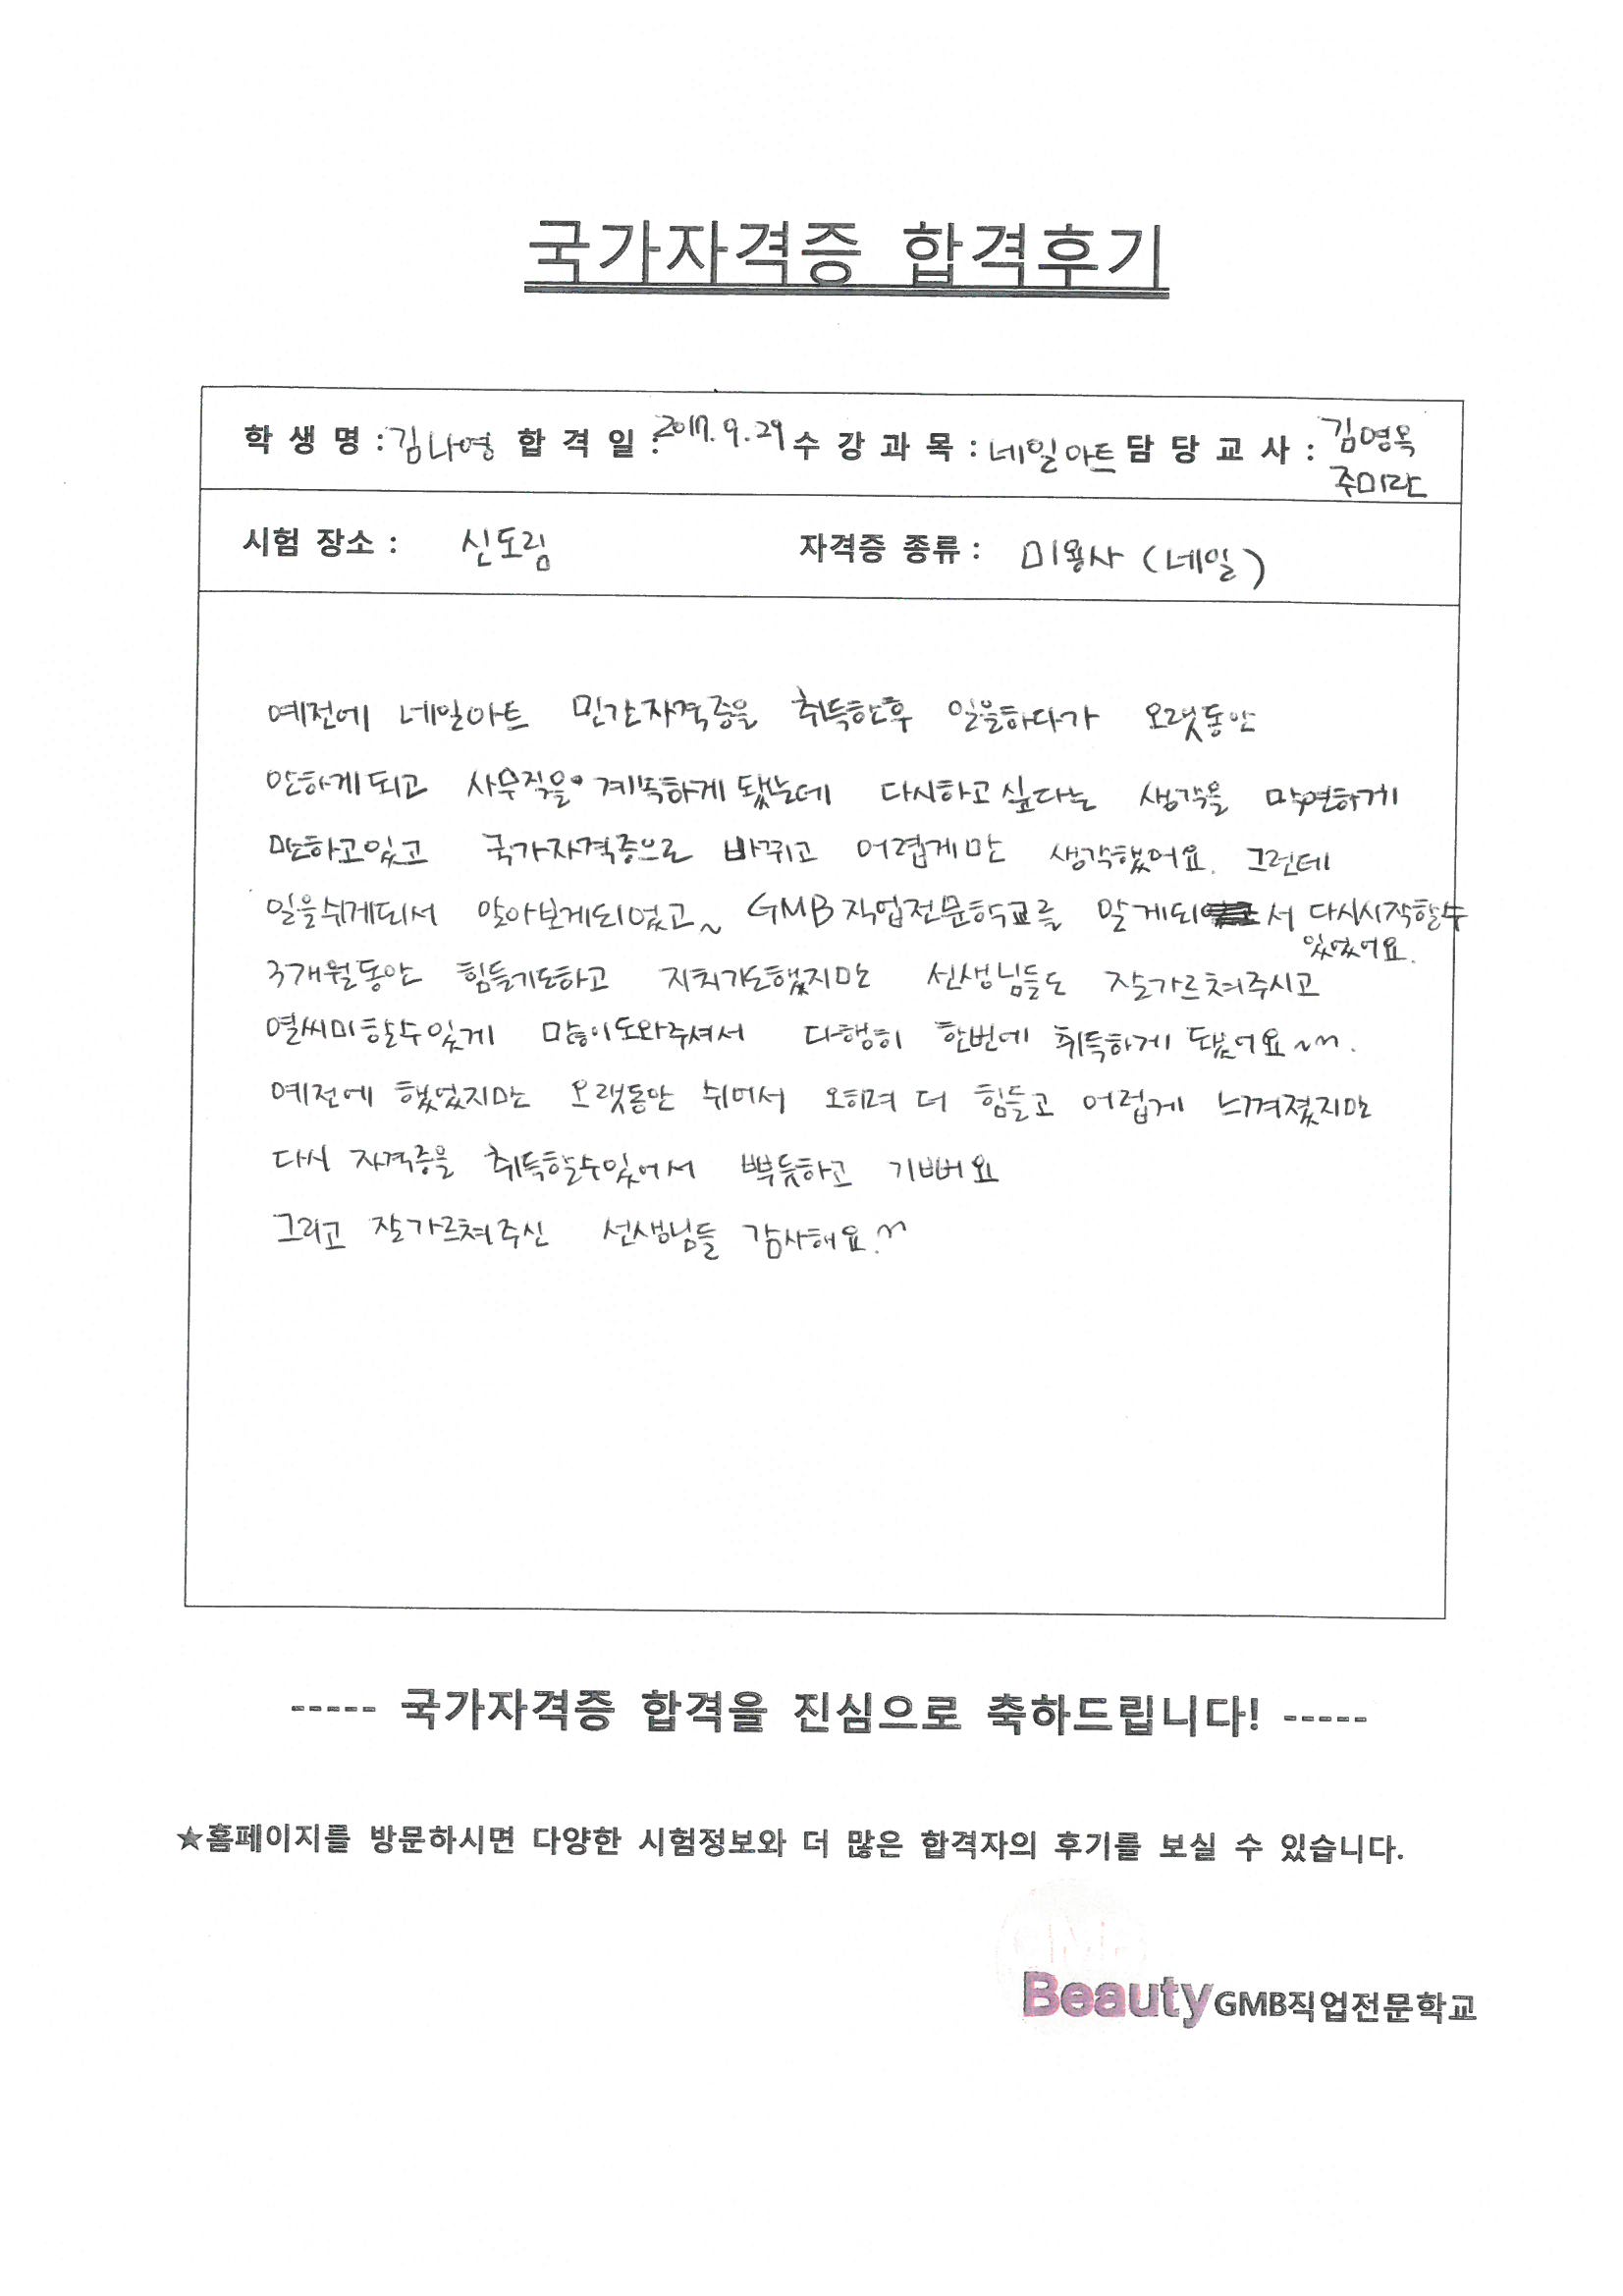 국가자격증 합격후기
학 생 명 : 김나영 합 격 일 : 2017.9.29 수 강 과 목 : 네일아트 담 당 교 사 : 김영옥
주미란
시험 장소 : 신도림 자격증 종류 : 미용사 (네일)
예전에 네일아트 민간자격증을 취득한후 일을하다가 오랫동안
안하게되고 사무직을 계쏙하게 됐는데 다시하고싶다는 생각을 막연하게
만하고있고 국가자격증으로 바뀌고 어렵게만 생각했어요. 그런데
일을쉬게되서 알아보게되었고~ GMB직업전문학교를 알게되서 다시시작할수
있었어요.
3개월동안 힘들기도하고 지치기도했지만 선생님들도 잘가르쳐주시고
열씨미할수있게 많이도와주셔서 다행히 한번에 취득하게 됬어요~^^.
예전에 했었지만 오랫동안 쉬어서 오히려 더 힘들고 어렵게 느껴졌지만
다시 자격증을 취득할수있어서 뿌듯하고 기뻐요
그리고 잘가르쳐주신 선생님들 감사해요.^^
----- 국가자격증 합격을 진심으로 축하드립니다! -----
★홈페이지를 방문하시면 다양한 시험정보와 더 많은 합격자의 후기를 보실 수 있습니다.
GMB
Beauty GMB직업전문학교